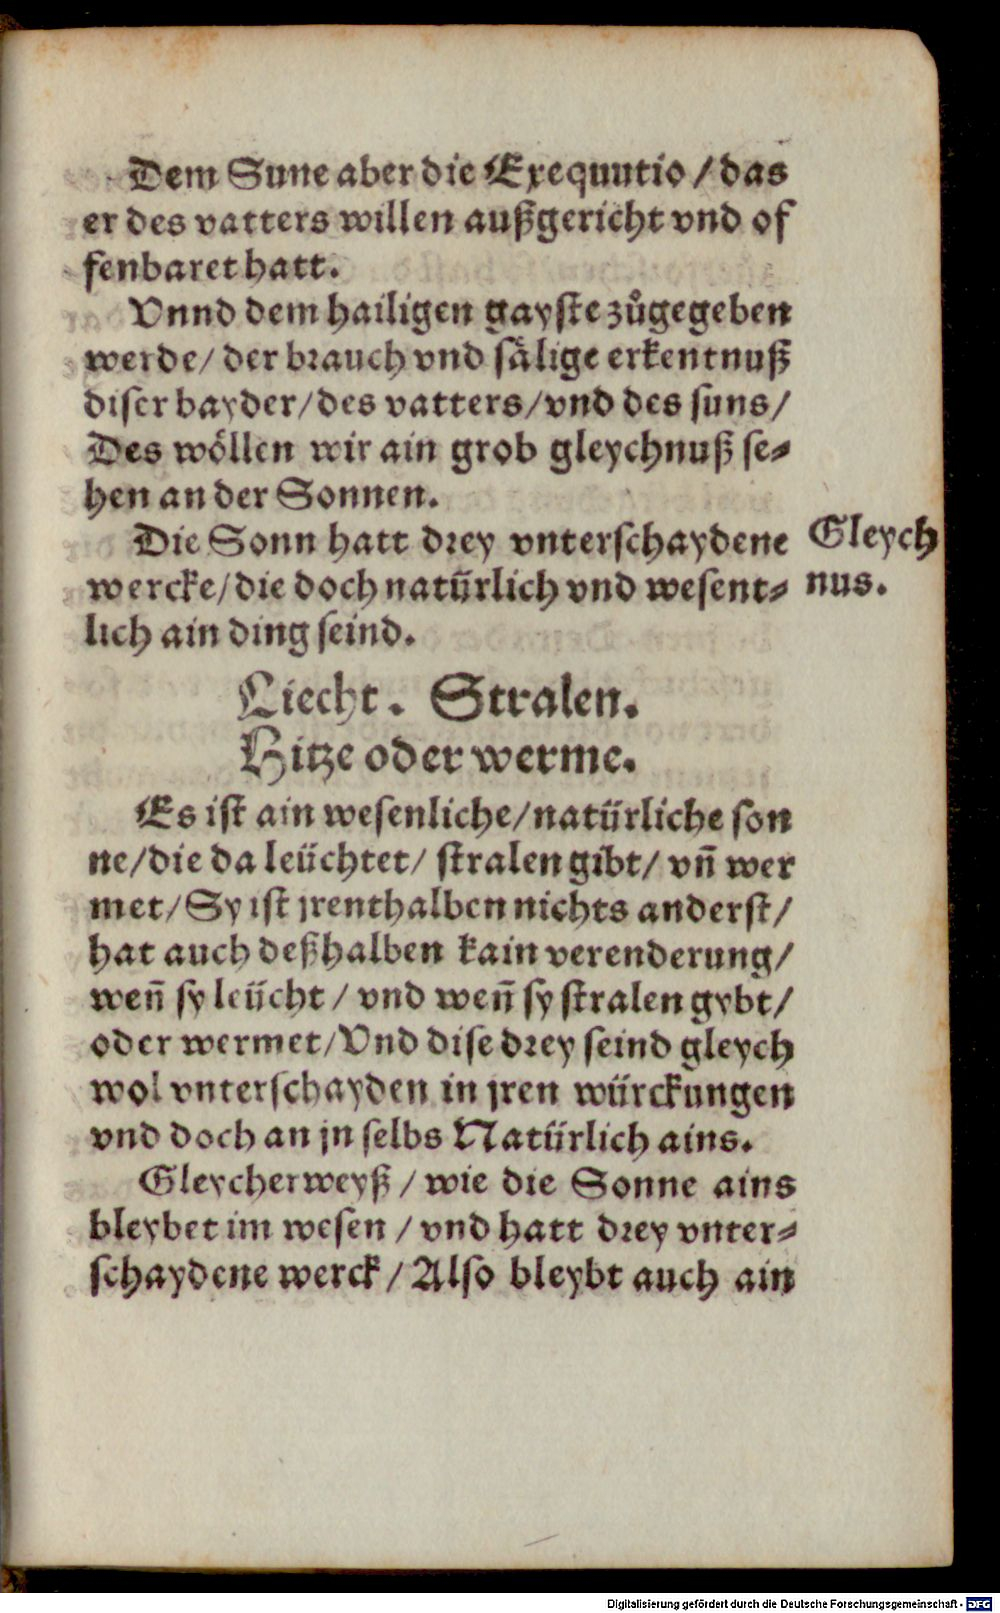 Dem Sune aber die Exequutio / das
er des vatters willen außgericht vnd of
fenbaret hatt.
Vnnd dem hailigen gayste zůgegeben
werde / der brauch vnd sälige erkentnuß
diser bayder / des vatters / vnd des suns /
Des wöllen wir ain grob gleychnuß se⸗
hen an der Sonnen.
Die Sonn hatt drey vnterschaydene
wercke / die doch natürlich vnd wesent⸗
lich ain ding seind.
Gleych
nus.
Liecht. Stralen.
Hitze oder werme.
Es ist ain wesenliche / natürliche son
ne / die da leüchtet / stralen gibt / vñ wer
met / Sy ist jrenthalben nichts anderst /
hat auch deßhalben kain verenderung /
weñ sy leücht / vnd weñ sy stralen gybt /
oder wermet / Vnd dise drey seind gleych
wol vnterschayden in jren würckungen
vnd doch an jn selbs Natürlich ains.
Gleycherweyß / wie die Sonne ains
bleybet im wesen / vnd hatt drey vnter⸗
schaydene werck / Also bleybt auch ain
Digitalisierung gefördert durch die Deutsche Forschungsgemeinschaft - DFG